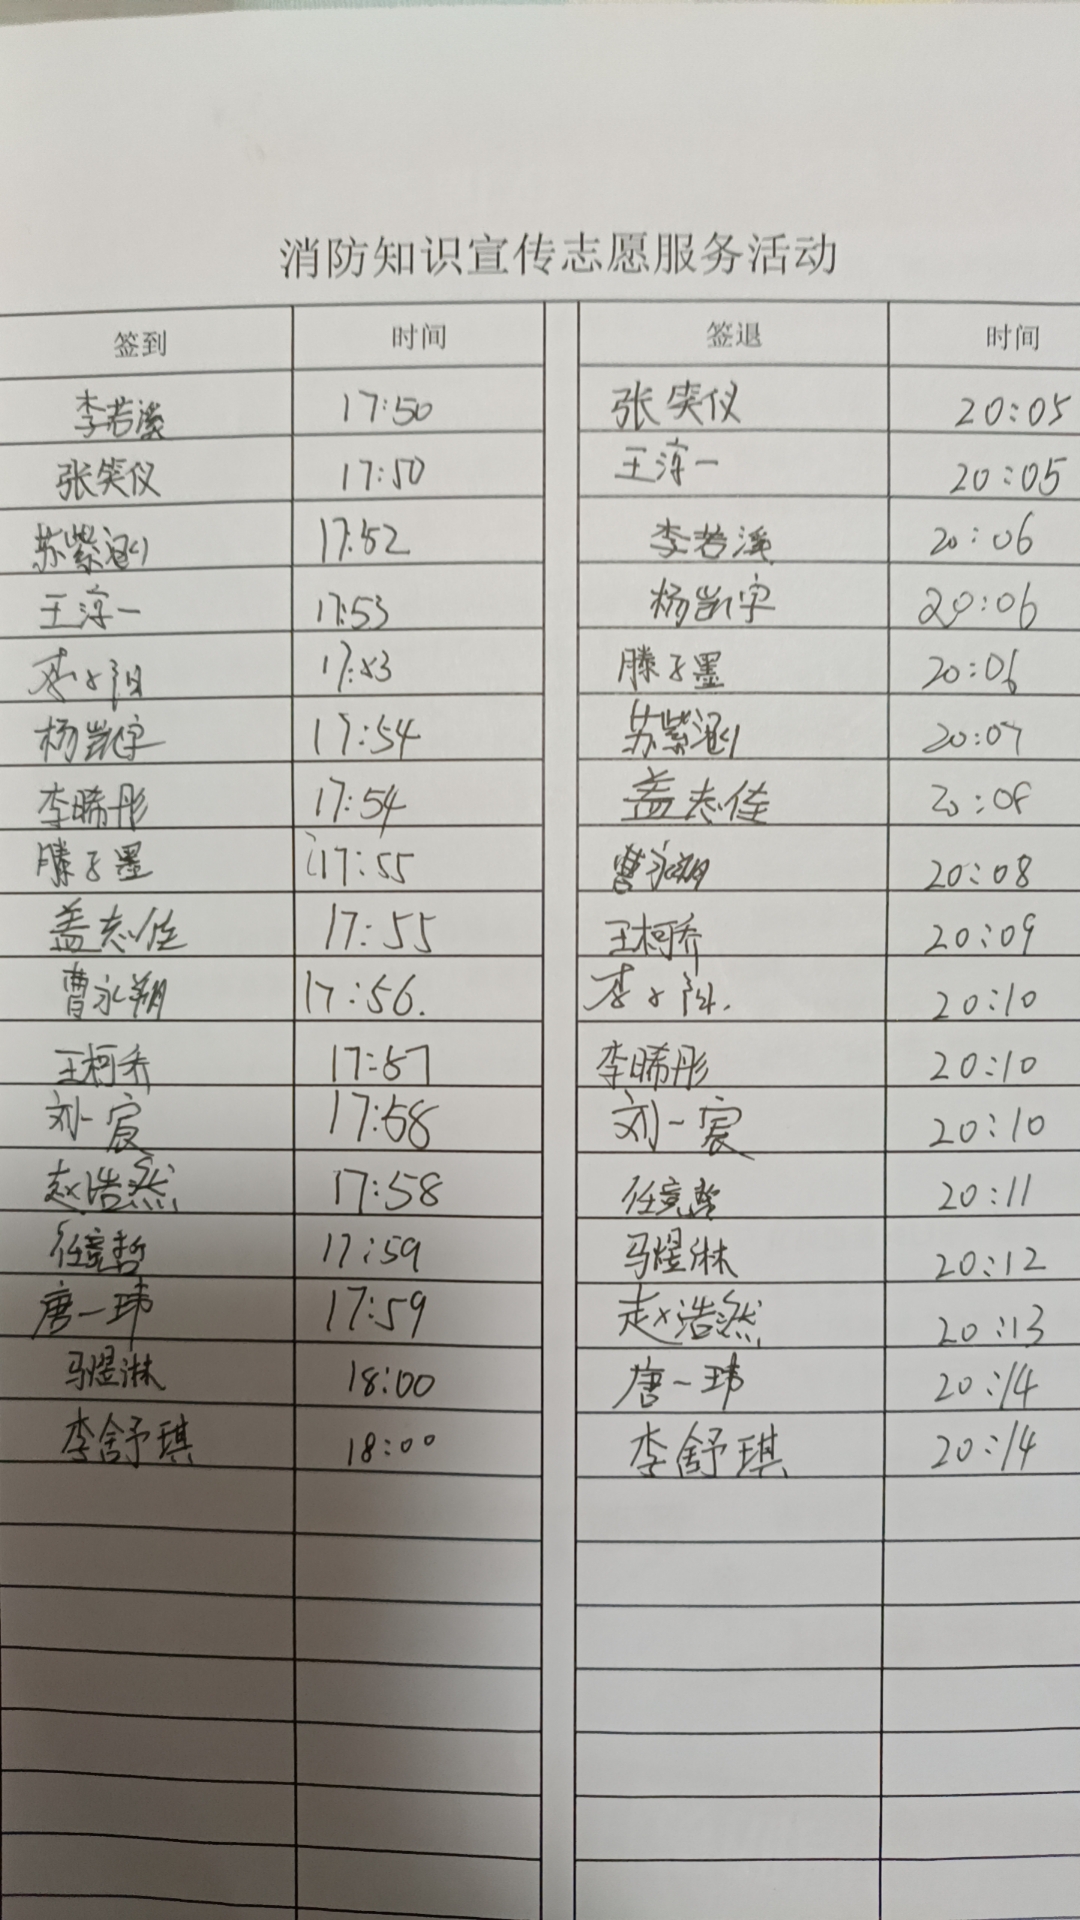 消防知识宣传志愿服务活动
签到 时间 签退 时间
李若溪 17:50 张笑仪 20:05
张笑仪 17:50 王淳一 20:05
苏紫涵 17:52 李若溪 20:06
王淳一 17:53 杨凯宇 20:06
李 阳 17:53 滕子墨 20:06
杨凯宇 17:54 苏紫涵 20:07
李晞彤 17:54 盖志佳 20:08
滕子墨 17:55 曹永翔 20:08
盖志佳 17:55 王柯乔 20:09
曹永翔 17:56. 李 阳. 20:10
王柯乔 17:57 李晞彤 20:10
刘一宸 17:58 刘一宸 20:10
赵浩然 17:58 任竞哲 20:11
任竞哲 17:59 马煜淋 20:12
唐一玮 17:59 赵浩然 20:13
马煜淋 18:00 唐一玮 20:14
李舒琪 18:00 李舒琪 20:14